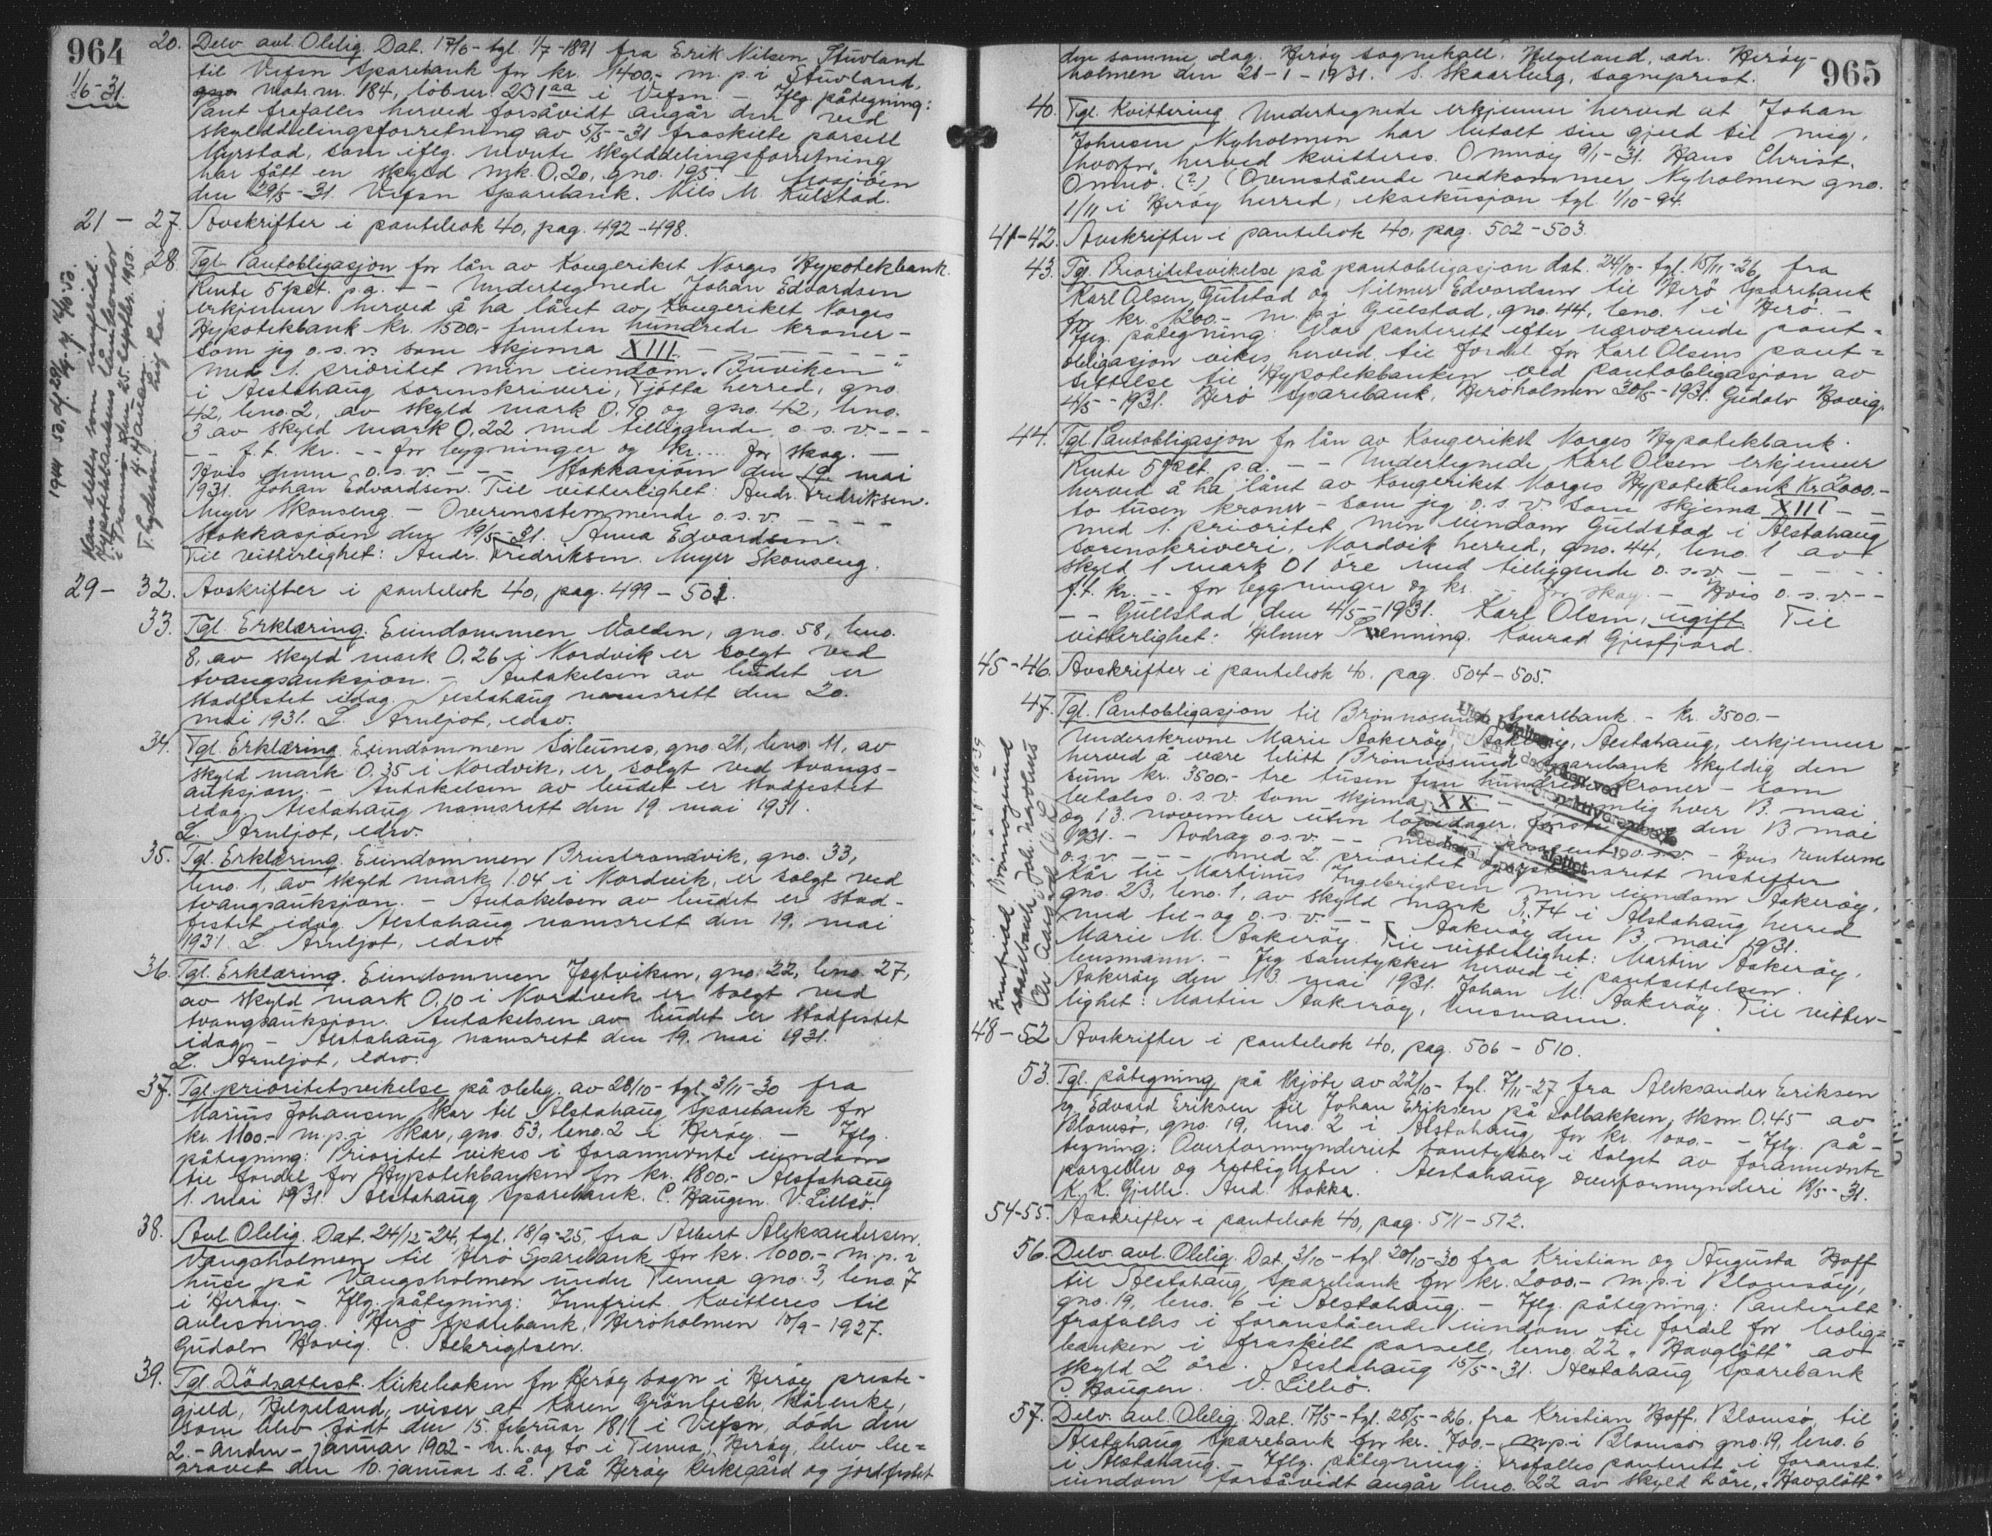 964
1/6-31.
20. Delv avl. Oblig. Dat. 17/6- tgl. 1/7-1891 fra Erik Nilsen Stuvland
til Vefsn Sparebank for kr. 1400,- m. p. i Stuvland,
gno matr. nr. 184, löbnr. 231 aa i Vefsn. - Iflg. påtegning:
Pant frafalles herved forsåvidt angår den ved
skylddelingsforretning av 5/5-31 fraskilte parsell
Myrstad, som iflg. nevnte skylddelingsforretning
har fått en skyld mk. 0,20, gno. 195. - Mosjöen
den 29/5-31. Vefsn Sparebank. Nils M. Kulstad.
21 - 27. Avskrifter i pantebok 40, pag. 492-498.
28. Tgl. Pantobligasjon for lån av Kongeriket Norges Hypotekbank.
Rente 5 pct. p.a. - - Undertegnede Johan Edvardsen
erkjenner herved å ha lånt av Kongeriket Norges
Hypotekbank kr. 1500,- femten hundrede kroner -
som jeg o.s.v. som skjema XIII. - - - - - -
med 1. prioritet min eiendom "Buviken"
i Alstahaug sorenskriveri, Tjötta herred, gno.
42, bno. 2, av skyld mark 0,70 og gno. 42, bno.
3 av skyld mark 0,22 med tilliggende o.s.v. - - -
- - f.t. kr. - - for bygninger og kr.... for skog. -
Hvis denne o.s.v. - - - Stokkasjöen den 19. mai
1931. Johan Edvardsen. Til vitterlighet: Andr. Fredriksen.
Meyer Skonseng. - Overensstemmende o.s.v. - - - -
Stokkasjöen den 19/5-31. Anna Edvardsen.
Til vitterlighet: Andr. Fredriksen. Meyer Skonseng.
Kan slettes som innfriet.
Hypotekbankens lånekontor
i Tromsö den 25. septbr. 1950.
T. Gydersen
29 - 32. Avskrifter i pantebok 40, pag. 499 - 501.
33. Tgl. Erklæring. Eiendommen Volden, gno. 58, bno.
8, av skyld mark 0,26 i Nordvik er solgt ved
tvangsauksjon. - Antakelsen av budet er
stadfestet idag. Alstahaug namsrett den 20.
mai 1931. L. Arnljot, edsv.
34. Tgl. Erklæring. Eiendommen Silunes, gno. 21, bno. 11, av
skyld mark 0,35 i Nordvik, er solgt ved tvangs-
auksjon. - Antakelsen av budet er stadfestet
idag. Alstahaug namsrett den 19 mai 1931.
L. Arnljot, edsv.
35. Tgl. Erklæring. Eiendommen Breistrandvik, gno. 33,
bno. 1, av skyld mark 1,04 i Nordvik, er solgt ved
tvangsauksjon. - Antakelsen av budet er stad-
festet idag. Alstahaug namsrett den 19. mai
1931. L. Arnljot, edsv.
36. Tgl. Erklæring. Eiendommen Jegtviken, gno. 22, bno. 27,
av skyld mark 0,10 i Nordvik er solgt ved
tvangsauksjon. Antakelsen av budet er stadfestet
idag. - Alstahaug namsrett den 19. mai 1931.
L. Arnljot, edsv.
37. Tgl. prioritetsvikelse på oblig. av 28/10- tgl. 3/11-30 fra
Marius Johansen Skar til Alstahaug Sparebank for
kr. 1100,- m.p. i Skar, gno. 53, bno. 2 i Heröy. - Iflg.
påtegning: Prioritet vikes i forannevnte eiendom
til fordel for Hypotekbanken for kr. 1800,- Alstahaug
1. mai 1931. Alstahaug Sparebank. C. Haugen. V. Lillsö.
38. Avl. Oblig. Dat. 24/12-24, tgl. 18/9-25, fra Albert Aleksandersen,
Vangsholmen til Herö Sparebank for kr. 1000,- m.p. i
huse på Vangsholmen under Tenna gno. 3, bno. 7
i Heröy. - Iflg. påtegning: Innfriet. Kvitteres til
avlesning. Herö Sparebank, Heröholmen 10/9-1927.
Gudolv Hovig. C. Albrigtsen.
39. Tgl. Dödsattest. Kirkeboken for Heröy sogn i Heröy preste-
gjeld, Helgeland, viser at Karen Grönbech,
som blev födt den 15. februar 1811 i Vefsn, döde den
2. - anden - januar 1902 - n.h. og to i Tenna, Heröy, blev be-
gravet den 10. januar s.å. på Heröy kirkegård og jordfestet
965
den samme dag. Heröy sognekall, Helgeland, adr. Heröy-
holmen den 21-1-1931. S. Skaarberg, sogneprest.
40. Tgl. Kvittering. Undertegnede erkjenner herved at Johan
Johnsen Nyholmen har betalt sin gjeld til mig,
hvorfor herved kvitteres. Omnöy 9/1-31. Hans Christ.
Omnö. (?) (Ovenstående vedkommer Nyholmen gno.
1/11 i Heröy herred, eksekusjon tgl 1/10-94.
41-42. Avskrifter i pantebok 40, pag. 502-503.
43. Tgl. Prioritetsvikelse på pantobligasjon dat. 24/10- tgl. 15/11-26, fra
Karl Olsen, Gulstad og Hilmer Edvardsen til Herö Sparebank
for kr. 1200,- m.p. i Gulstad, gno. 44, bno. 1 i Herö. -
Iflg. påtegning: Vår panterett efter nærværende pant-
obligasjon vikes herved til fordel for Karl Olsens pant-
settelse til Hypotekbanken ved pantobligasjon av
4/5-1931. Herö Sparebank, Heröholmen 30/5-1931. Gudolv Hovig.
44. Tgl. Pantobligasjon for lån av Kongeriket Norges Hypotekbank.
Rente 5 pct. p.a. - - Undertegnede Karl Olsen erkjenner
herved å ha lånt av Kongeriket Norges Hypotekbank Kr. 2000,-
to tusen kroner - som jeg o.s.v. som skjema XIII - -
med 1. prioritet min eiendom Guldstad i Alstahaug
sorenskriveri, Nordvik herred, gno. 44, bno. 1 av
skyld 1 mark 01 öre med tilliggende o.s.v. - - - - -
f.t. kr. - - for bygninger og kr. - - for skog. - Hvis o.s.v. - -
- - Gullstad, den 4/5-1931. Karl Olsen, ugift. Til
vitterlighet: Hilmer Svenning. Konrad Gjesfjord.
45-46. Avskrifter i pantebok 40, pag. 504-505.
47. Tgl. Pantobligasjon til Brönnösund Sparebank. - kr. 3500,-
Underskrevne Marie Aakeröy, Aakeröy, Alstahaug, erkjenner
herved å være blitt Brönnösund Sparebank skyldig den
sum kr. 3500,- tre tusen fem hundrede kroner - som
betales o.s.v. som skjema XX. - - nemlig hver 13. mai
og 13. november uten löpedager, förste gang den 13 mai
1931. - Avdrag o.s.v. - - procent o.s.v. - Hvis renterne
o.s.v. - - - med 2 prioritet oprykkensrett nestefter
kår til Martinus Ingebrigtsen min eiendom Aakeröy,
gno. 23, bno. 1, av skyld mark 3,74 i Alstahaug herred
med til- og o.s.v. - - Aakeröy den 13. mai 1931.
Marie M. Aakeröy. Til vitterlighet: Martin Aakeröy,
lensmann. - Jeg samtykker herved i pantsettelsen.
Aakeröy den 13. mai 1931. Johan M. Aakeröy. Til vitter-
lighet: Martin Aakeröy, lensmann.
48-52 Avskrifter i pantebok 40, pag. 506-510.
53. Tgl. påtegning på skjöte av 22/10- tgl. 7/11-27 fra Aleksander Eriksen
og Edvard Eriksen til Johan Eriksen på Solbakken, skm. 0.45 av
Blomsö, gno. 19, bno. 2 i Alstahaug for kr. 1000,- - Iflg. på-
tegning: Overformynderiet samtykker i salget av forannevnte
parseller og rettigheter. Alstahaug overformynderi 18/5-31.
K. K. Gjelle. And. Stokka.
54-55. Avskrifter i pantebok 40, pag. 511-512.
56. Delv. avl. Oblig. Dat. 3/10- tgl. 20/10-30 fra Kristian og Augusta Hoff
til Alstahaug Sparebank for kr. 2000,- m.p. i Blomsöy,
gno. 19, bno. 6 i Alstahaug. - Iflg. påtegning: Panterett
frafalles i foranstående eiendom til fordel for bolig-
banken i fraskilt parsell, brno. 22 "Havglött" av
skyld 2 öre. Alstahaug 15/5-31. Alstahaug Sparebank
C. Haugen. V. Lillsö.
57. Delv. avl. Oblig. Dat. 17/5- tgl. 25/5-26, fra Kristian Hoff, Blomsö, til
Alstahaug Sparebank for kr. 700,- m.p. i Blomsö gno. 19, bno. 6
i Alstahaug. - Iflg. påtegning: Frafalles panterett i foranst.
eiendom forsåvidt angår bno. 22 av skyld 2 öre, "Havglött"